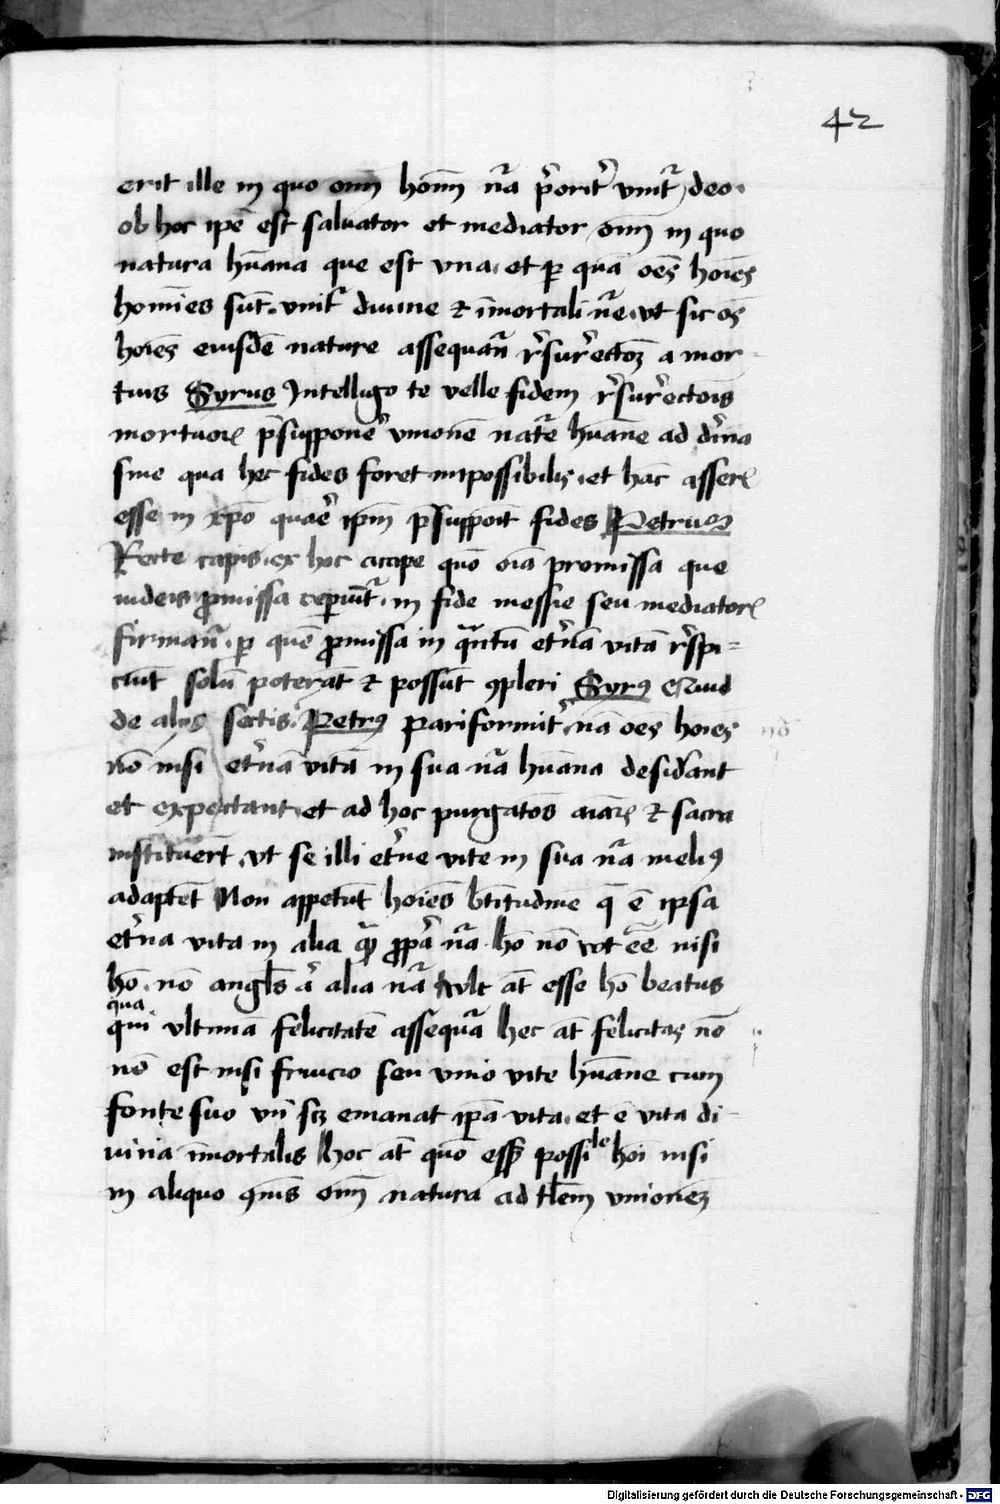 42
erit ille in quo om̄ hom̄ nr̄a p̄orit̄ unit̄ deo.
ob hoc ip̄e est saluator et mediator om̄ in quo
natura hūana que est una. et per quā oēs hoīes
homīes sūt. unit̄ diuine et īmortali nr̄e. ut sic oēs
hoīes eiusdē nature assequan̄ r̄surrectoēȝ a mor
tuis Syrus Intelligo te velle fidem r̄surrectōis
mortuoꝝ p̄supponē unionē nat̄e hūane ad diūa
sine qua hec fides foret impossibilis. et hāc asserꝭ
esse in xp̄o quar̄ ip̄m p̄suppoīt fides Petrus
Recte capis. ex hoc accipe quō oīa premissa que
iudeis ꝓmissa ceperiūt̄. in fide messie seu mediatorꝭ
firman̄. ꝑ quē ꝓmissa in q̄ntū et̄nā vitā r̄spi=
ciūt solū poterāt et possūt ꝯpleri Syrꝰ Quid
de alijs sectis. Petrꝰ pariformit̄. nā oēs hoīes
nō nisi et̄nā vitā in sua nr̄a hūana desid̄ant
et expectant. et ad hoc purgatōēs aīaꝝ et sacra
instituēr̄t. ut se illi et̄ne vite in sua nr̄a meliꝰ
adaptēt Non appetūt hoīes btītudinē q̄ ē ipsa
et̄na vita in alia q̄ꝫ ꝓpā nr̄a. hō nō wt eē nisi
hō. nō angl̄s ā alia nr̄a wlt āt esse hō beatus
qua
qui ultimā felicitatē assequat̄ hec āt felicitas nō
nō est nisi fruicio seu unio vite hūane cum
fonte suo un̄ scȝ emanat ip̄a vita. et ē vita di
uina īmortalis Hoc āt quō esset possile hoī nisi
in aliquo qm̄s om̄ natura ad tl̄em unioneȝ
Digitalisierung gefördert durch die Deutsche Forschungsgemeinschaft - DFG